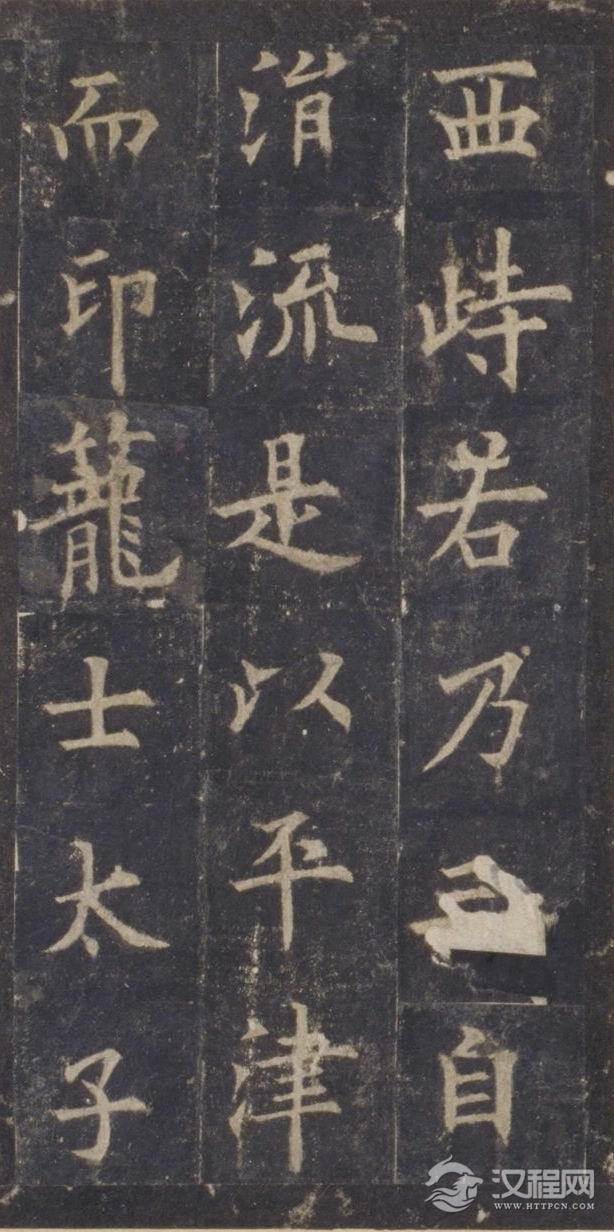 西峙若乃自
涓流是以平津
而印籠士太子
汉程网
WWW.HTTPCN.COM